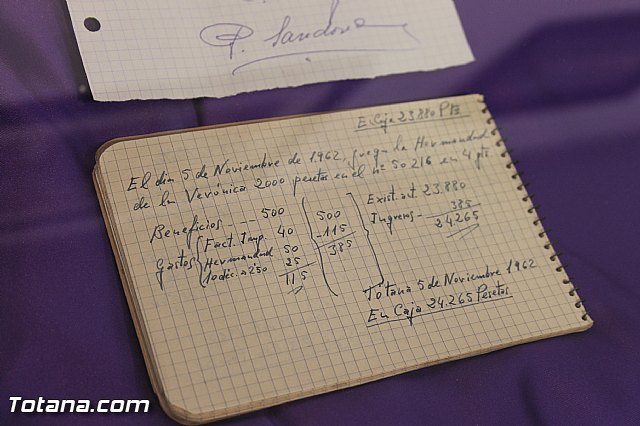 P. Sandova
E. Caja 23.880 Pts
El dia 5 de Noviembre de 1962, juega la Hermandad
de la Verónica 2000 pesetas en el nº 50.216 en 4 pts.
Beneficios ---- 500
Gastos Fact. Imp. 40
Hermandad 50
10 déc. a 2'50 25
115
500
-115
385
Exist. ant. 23.880
Ingresos - 385
24.265
Totana 5 de Noviembre 1962
En Caja 24.265 Pesetas
Totana.com